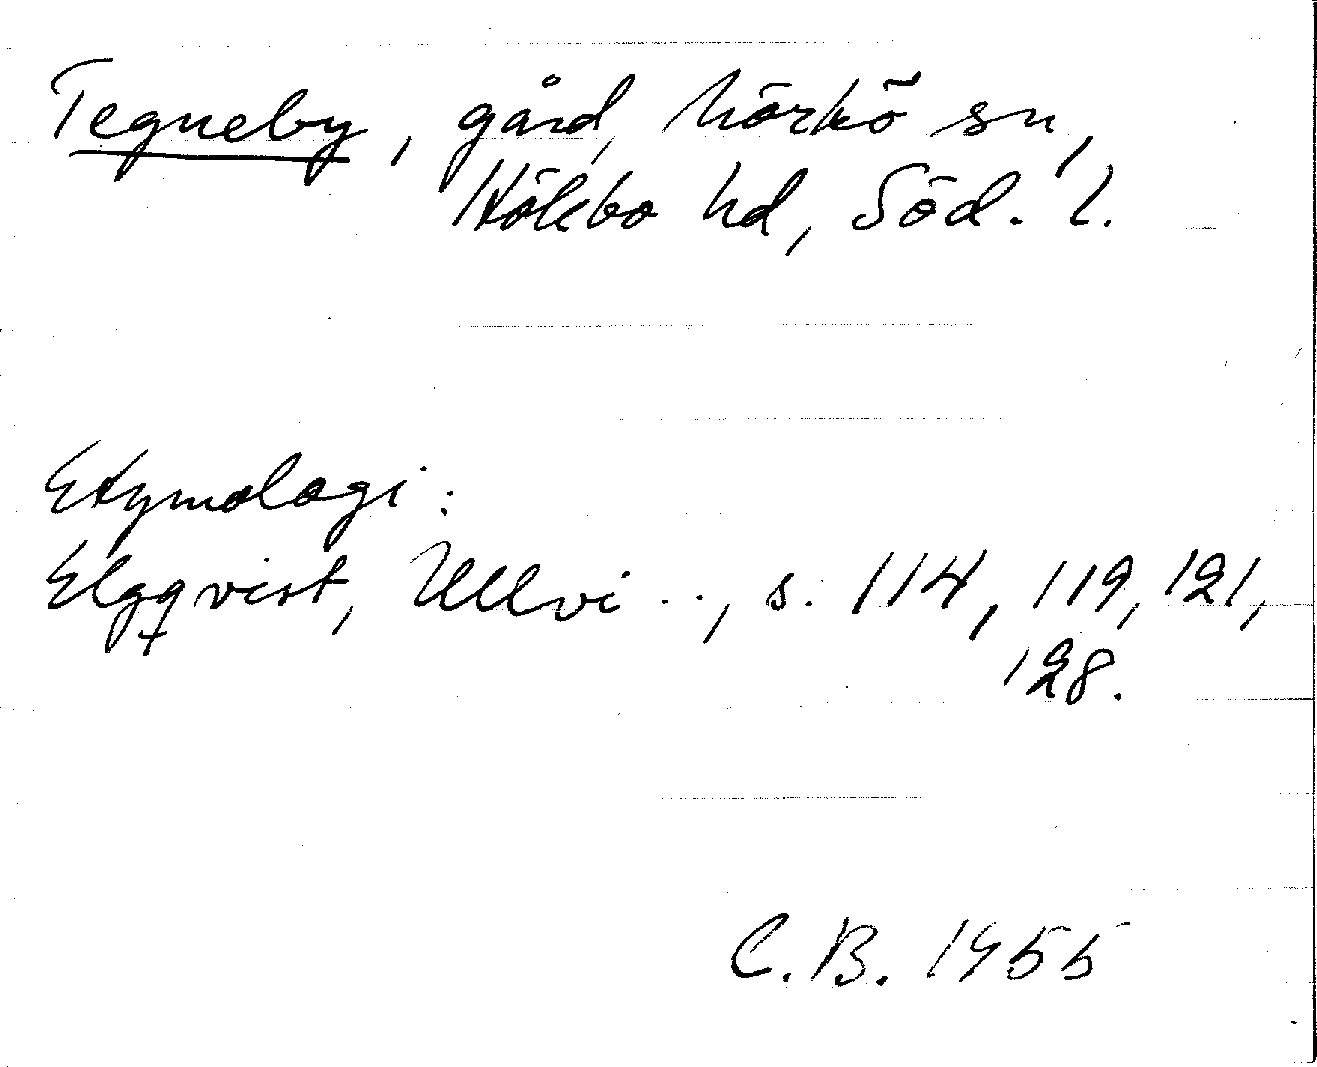 Tegneby, gård, Mörkö sn,
Hölebo hd, Söd. l.
Etymologi:
Elgqvist, Ullvi .., s. 114, 119, 121,
128.
C.B. 1955